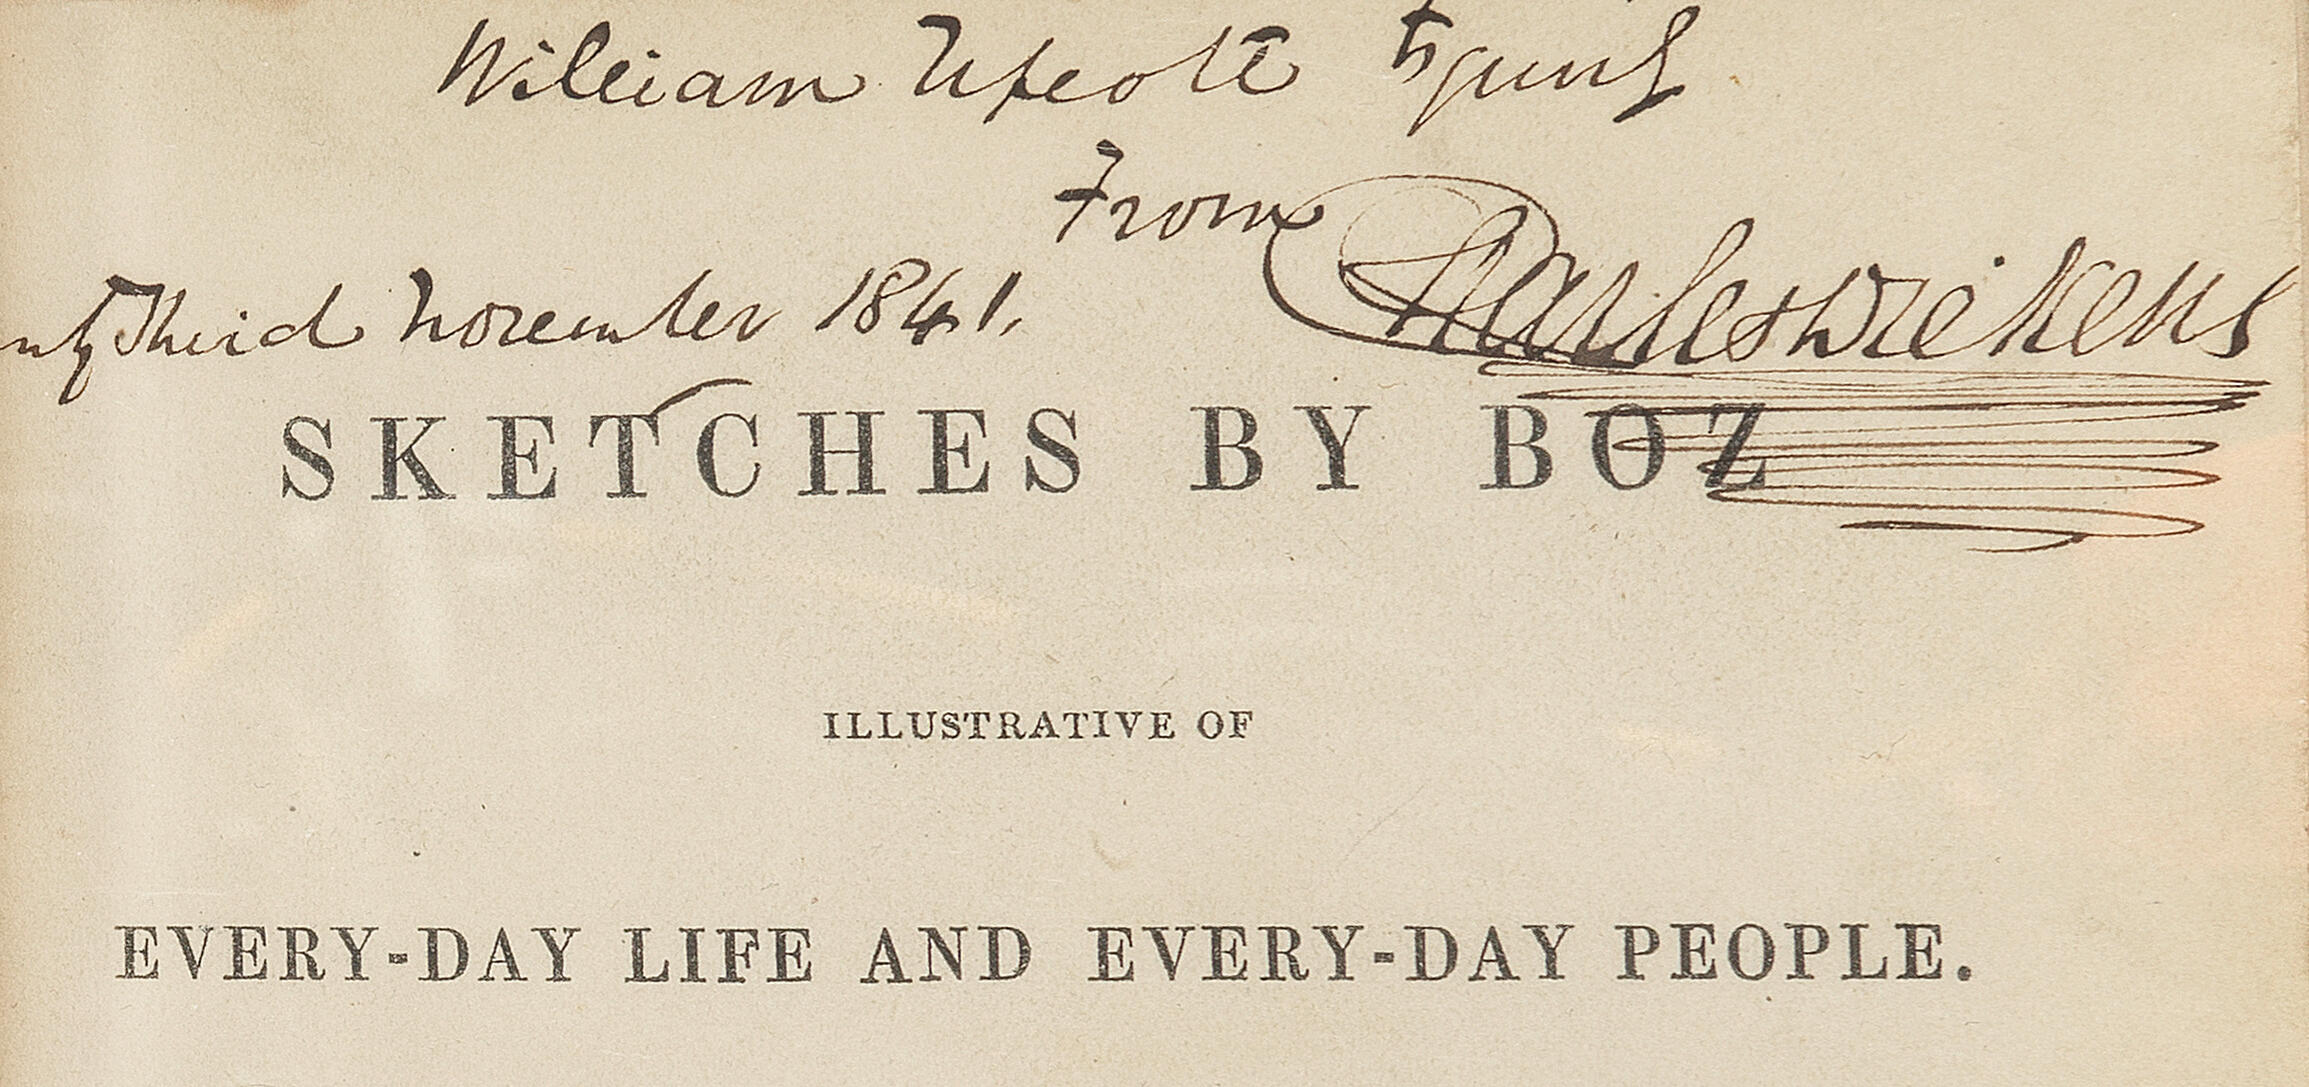 William Upcott
From Charles Dickens
nty Third November 1841.
SKETCHES BY BOZ
ILLUSTRATIVE OF
EVERY-DAY LIFE AND EVERY-DAY PEOPLE.